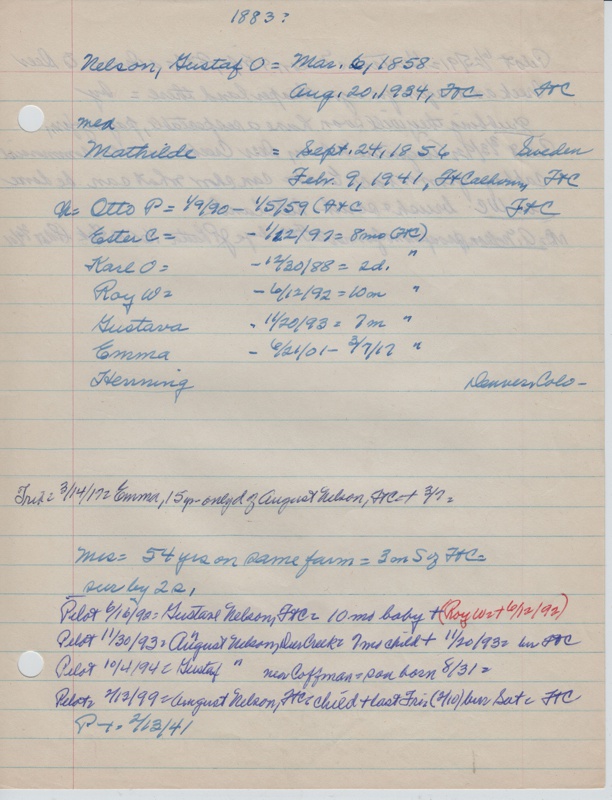 1883?
Nelson, Gustaf O = Mar. 6, 1858
Aug. 20. 1934, FtC FtC
med
Mathilde = Sept. 24, 1856 Sweden
Febr. 9, 1941, Ft Calhoun, FtC
Ch = Otto P = 1/9/90 - 1/5/59 (FtC FtC
Ester C = - 1/22/97 = 8 mo (FtC)
Karl O = - 12/20/88 = 2d. "
Roy W = - 6/12/92 = 10 m "
Gustava - 11/20/93 = 7 m "
Emma - 6/21/01 - 3/7/17 "
Henning Denver, Colo -
3/14/17 = Emma, 15 yr only d of August Nelson, FtC + 3/7 =
Mrs = 54 yrs on same farm = 3 m S of FtC =
sur by 2 s,
Pilot 6/16/92 = Gustave Nelson, FtC = 10 mo baby + (Roy W = + 6/12/92)
Pilot 11/30/93 = August Nelson, = 7 mo child + 11/20/93 = in FtC
Pilot 10/4/94 = Gustaf " near Coffman = son born 8/31 =
Pilot = 2/13/99 = August Nelson, FtC = child + last Fri (2/10) bur Sat = FtC
P + = 2/13/41